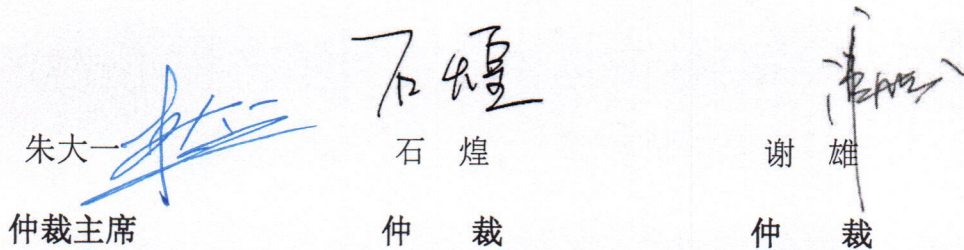 石煌
朱大一 石 煌 谢 雄
仲裁主席 仲 裁 仲 裁